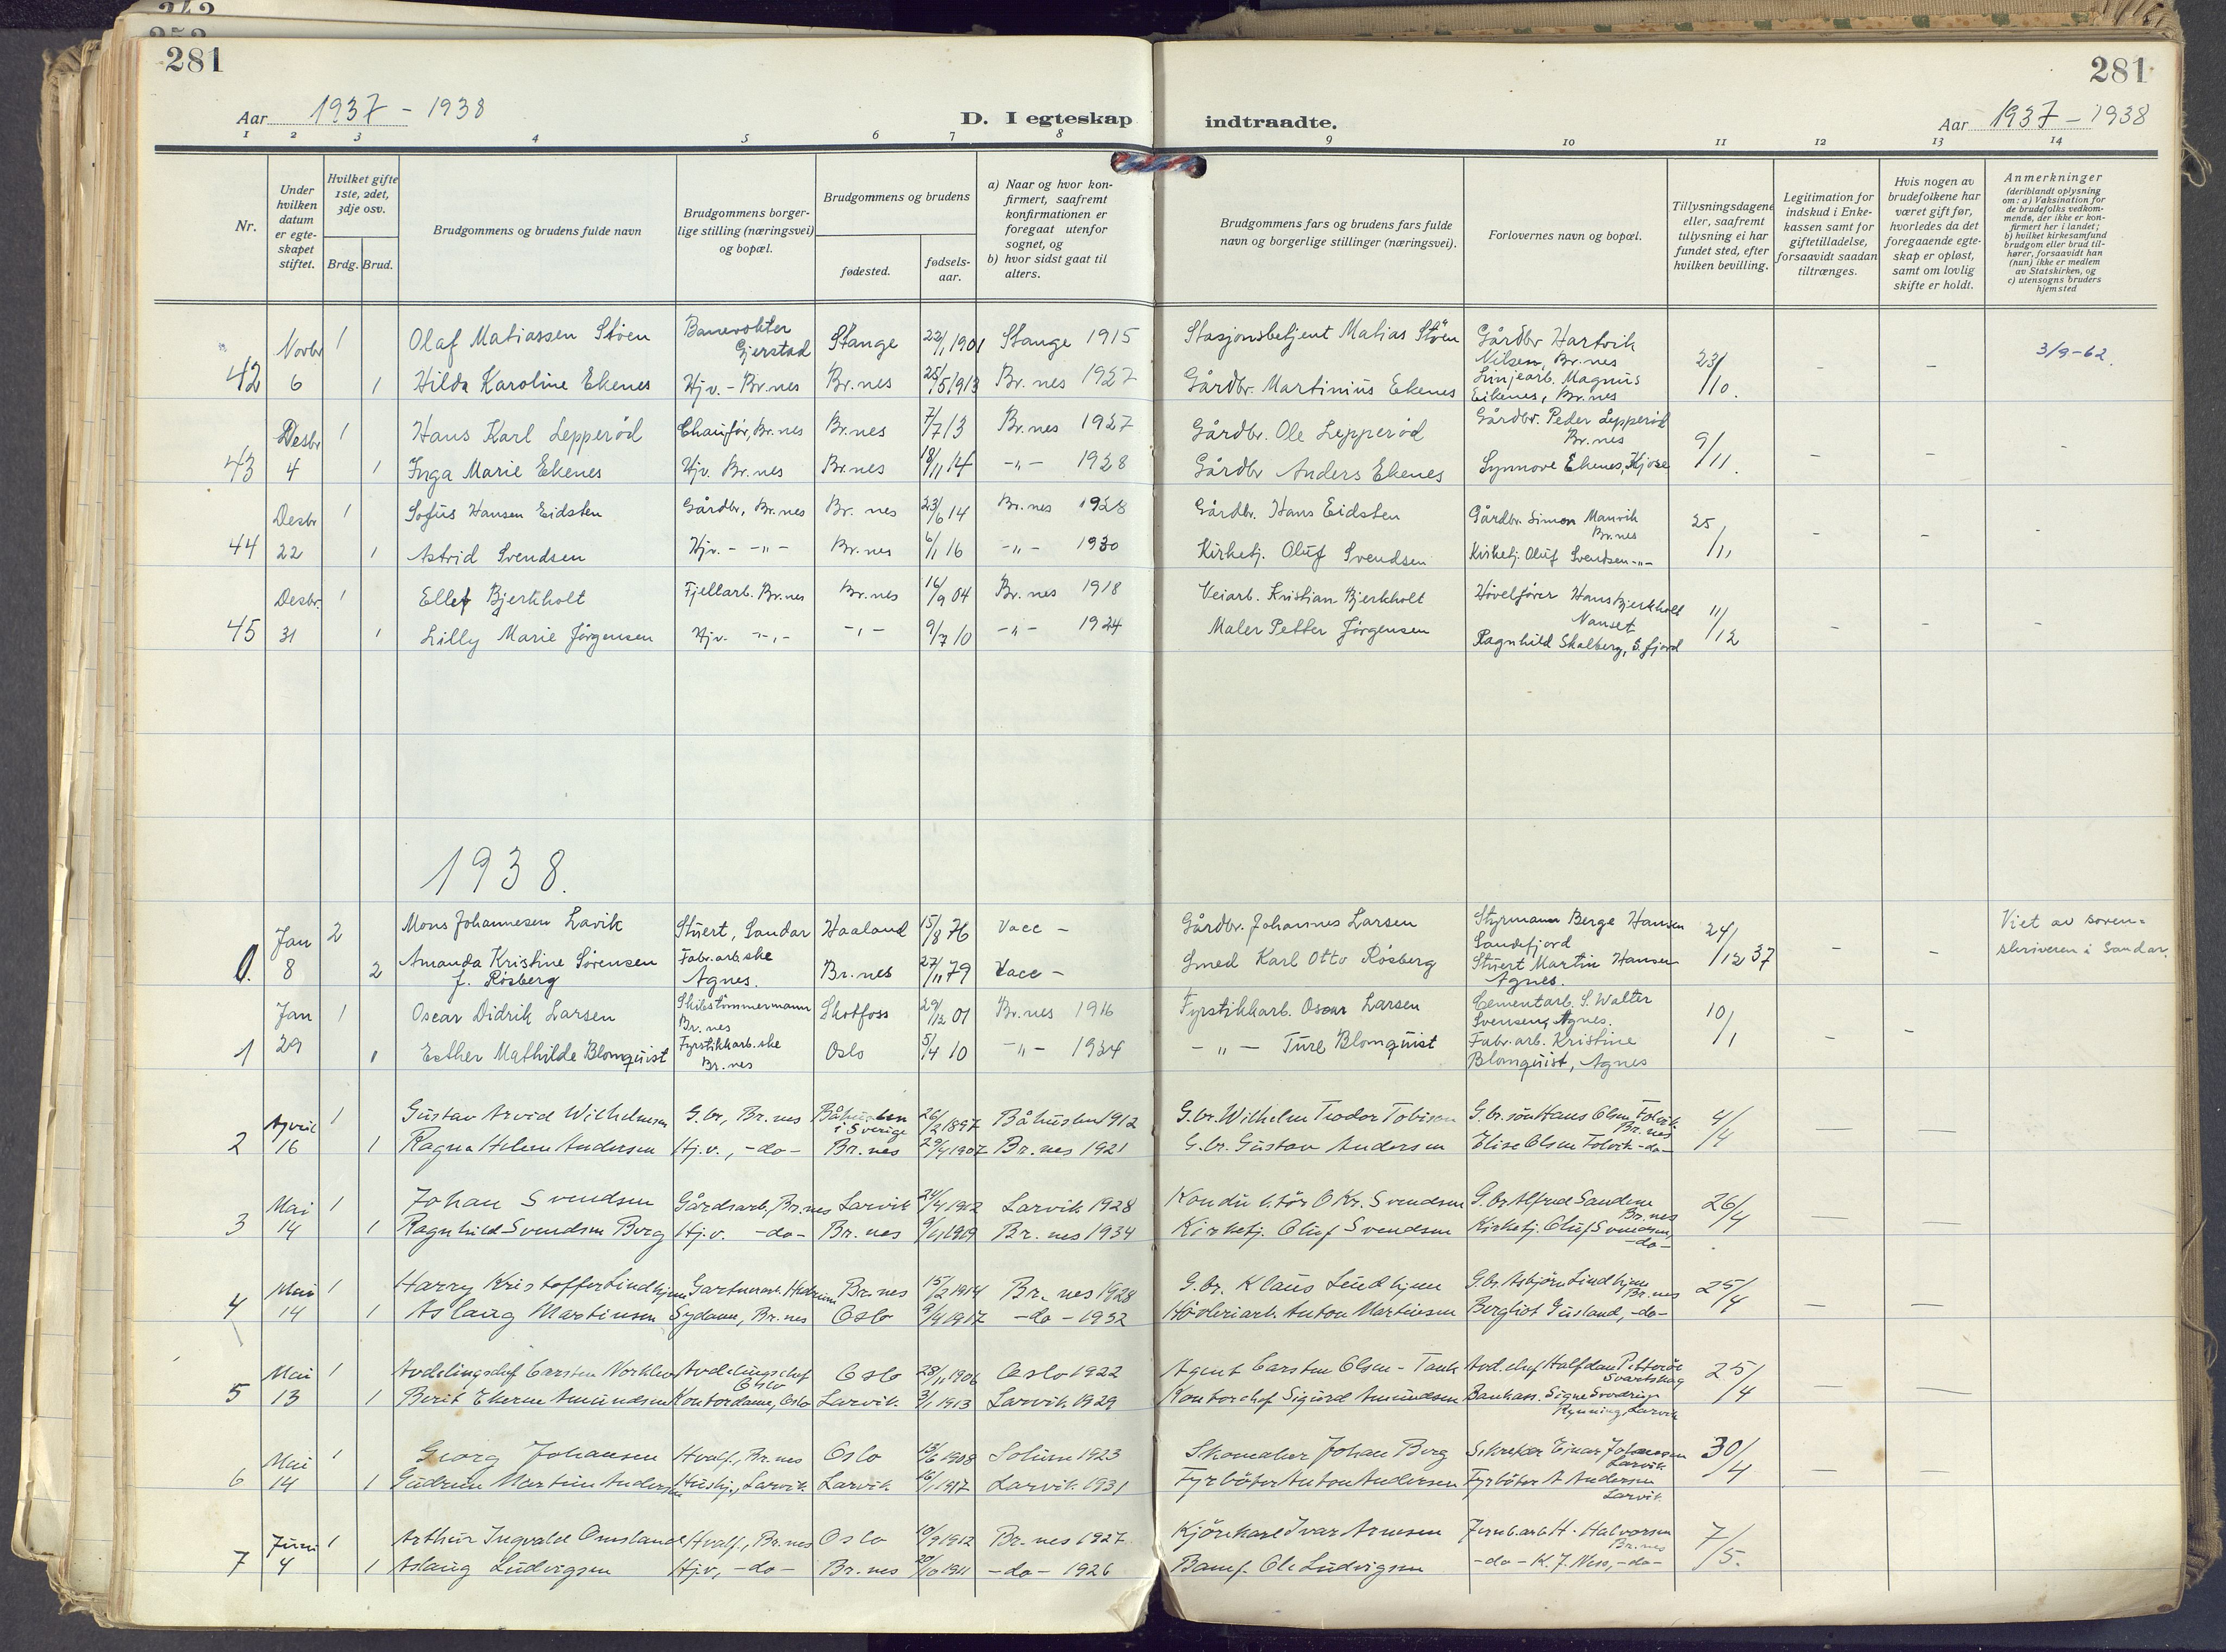 281
281
Aar 1937 - 1938
D. I egteskap
indtraadte.
Aar 1937 - 1938
1 2 3 4 5 6 7 8 9 10 11 12 13 14
Nr.
Under hvilken datum er egteskapet stiftet.
Hvilket gifte 1ste, 2det, 3dje osv.
Brdg. Brud.
Brudgommens og brudens fulde navn
Brudgommens borgerlige stilling (næringsvei) og bopæl.
Brudgommens og brudens
fødested.
fødselsaar.
a) Naar og hvor konfirmert, saafremt konfirmationen er foregaat utenfor sognet, og
b) hvor sidst gaat til alters.
Brudgommens fars og brudens fars fulde navn og borgerlige stillinger (næringsvei).
Forlovernes navn og bopæl.
Tillysningsdagene eller, saafremt tillysning ei har fundet sted, efter hvilken bevilling.
Legitimation for indskud i Enkekassen samt for giftetilladelse, forsaavidt saadan tiltrænges.
Hvis nogen av brudefolkene har været gift før, hvorledes da det foregaaende egteskap er opløst, samt om lovlig skifte er holdt.
Anmerkninger (deriblandt oplysning om: a) Vaksination for de brudefolks vedkommende, der ikke er konfirmert her i landet; b) hvilket kirkesamfund brudgom eller brud tilhører, forsaavidt han (hun) ikke er medlem av Statskirken, og c) utensogns bruders hjemsted
Novbr 1 Olaf Matiassen Støen Banevokter Gjerstad Stange 22/1 1901 Stange 1915 Stasjonsbetjent Matias Støen Gårdbr Hartvik Nilsen, Br.nes 23/10. - - 3/9-62.
42 6 1 Hilda Karoline Ekenes Hj.v. - Br.nes Br.nes 25/5 1913 Br.nes 1927 Gårdbr. Martinius Ekenes Linjearb. Magnus Eikenes, Br.nes
Desbr 1 Hans Karl Lepperød Chaufør, Br.nes Br.nes 7/7 13 Br.nes 1927 Gårdbr. Ole Lepperød Gårdbr. Peder Lepperød Br.nes 9/11. - - -
43 4 1 Inga Marie Ekenes Hjv. Br.nes Br.nes 18/11 14 -"- 1928 Gårdbr Anders Ekenes Synnove Ekenes, Kjose
Desbr 1 Sofus Hansen Eidsten Gårdbr, Br.nes Br.nes 23/6 14 Br.nes 1928 Gårdbr. Hans Eidsten Gårdbr. Simon Manvik Br.nes 25/11 - - -
44 22 1 Astrid Svendsen Hjv. - -"- Br.nes 6/1 16 -"- 1930 Kirketj. Oluf Svendsen Kirketj. Oluf Svendsen -"-
Desbr. 1 Ellef Bjerkholt Fjellarb. Br.nes Br.nes 16/9 04 Br.nes 1918 Veiarb. Kristian Bjerkholt Høvelfører Hans Bjerkholt Nanset 11/12 - - -
45 31 1 Lilly Marie Jørgensen Hjv. -"- -"- 9/7 10 -"- 1924 Maler Petter Jørgensen Ragnhild Skalberg, S.fjord
1938.
Jan 2 Mons Johannesen Lavik Stuert, Sandar Haaland 15/8 76 Vacc - Gårdbr. Johannes Larsen Styrmann Berge Hansen Sandefjord 24/12 37 - - Viet av soren=
0. 8 2 Amanda Kristine Sørensen f. Røsberg Fabr.arb.ske Agnes. Br.nes 27/11 79 Vacc - Smed Karl Otto Røsberg Stuert Martin Hansen Agnes. skriveren i Sandar.
Jan 1 Oscar Didrik Larsen Skibstømmermann Br.nes Skotfoss 29/12 01 Br.nes 1916 Fyrstikkarb. Oscar Larsen Cementarb. S. Walter Svensen, Agnes. 10/1 - -
1 29 1 Esther Mathilde Blomquist Fyrstikkarb.ske Br.nes Oslo 5/4 10 -"- 1934 -"- Ture Blomquist Fabr.arb. Kristine Blomquist, Agnes
April 1 Gustav Arvid Wilhelmsen G.br, Br.nes Båhuslen i Sverige 26/2 1897 Båhuslen 1912 G.br. Wilhelm Teodor Tobison G.br. søn Hans Olsen Folvik Br.nes 4/4 - -
2 16 1 Ragna Helene Andersen Hj.v., -do- Br.nes 29/4 1907 Br.nes 1921 G.br. Gustav Andersen Elise Olsen Folvik -do-
Mai 1 Johan Svendsen Gårdsarb., Br.nes Larvik 24/4 1912 Larvik 1928 Konduktør O Kr. Svendsen G.br Alfred Sandene Br.nes 26/4 - -
3 14 1 Ragnhild Svendsen Berg Hj.v. -do- Br.nes 9/1 1919 Br.nes 1934 Kirketj. Oluf Svendsen Kirketj. Oluf Svendsen, -do-
Mai 1 Harry Kristoffer Lindhjem Gartnerarb. Hedrum Br.nes 15/2 1914 Br.nes 1928 G.br. Klaus Lindhjem G.br. Asbjørn Lindhjem Br.nes 25/4 - -
4 14 1 Aslaug Martinsen Sydame, Br.nes Oslo 9/4 1917 -do- 1932 Høvleriarb. Anton Martinsen Bergliot Gusland, -do-
Mai 1 Avdelingschef Carsten Avdelingschef Oslo Oslo 28/11 1906 Oslo 1922 Agent Carsten Olsen - Tank Avd.chef Halfdan Svartskog 25/4 - -
5 13 1 Berit Ekerne Amundsen Kontordame, Oslo Larvik 3/1 1913 Larvik 1929 Kontorchef Sigurd Amundsen Bankass. Signe Rynning, Larvik
Mai 1 Georg Johansen Hvalf., Br.nes Oslo 13/6 1908 Solum 1923 Skomaker Johan Berg Sekretær Einar Johansen Larvik 30/4 - -
6 14 1 Gudrun Martine Andersen Hushj., Larvik Larvik 16/1 1917 Larvik 1931 Fyrbøter Anton Andersen Fyrbøter A Andersen Larvik
Juni 1 Arthur Ingvald Omsland Hvalf., Br.nes Oslo 10/9 1912 Br.nes 1927. Kjørekarl Ivar Arnesen Jernb.arb H. Halvorsen Br.nes 7/5.
7 4 1 Aslaug Ludvigsen Hj.v, -do- Br.nes 20/10 1911 -do- 1926 Banef. Ole Ludvigsen -do- K. J. Ness, -do-